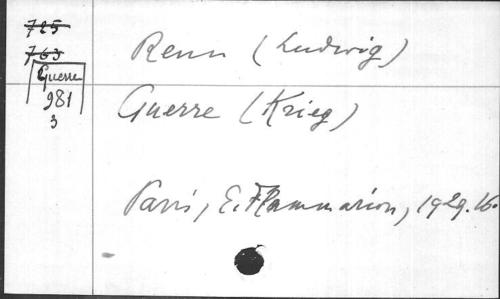 725
763
Guerre
981
3
Renn (Ludwig)
Guerre (Krieg)
Paris, E. Flammarion, 1929. 16o